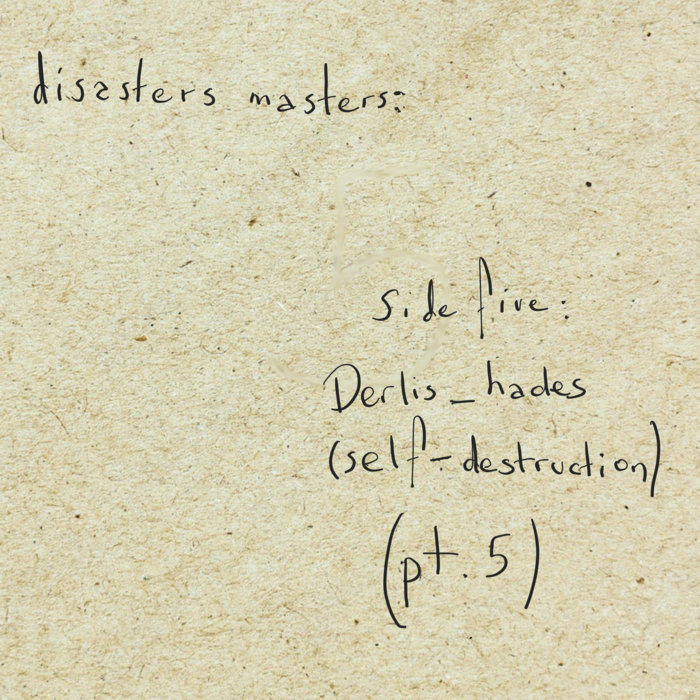 disasters masters:
side five:
Derlis_hades
(self-destruction)
(pt. 5)